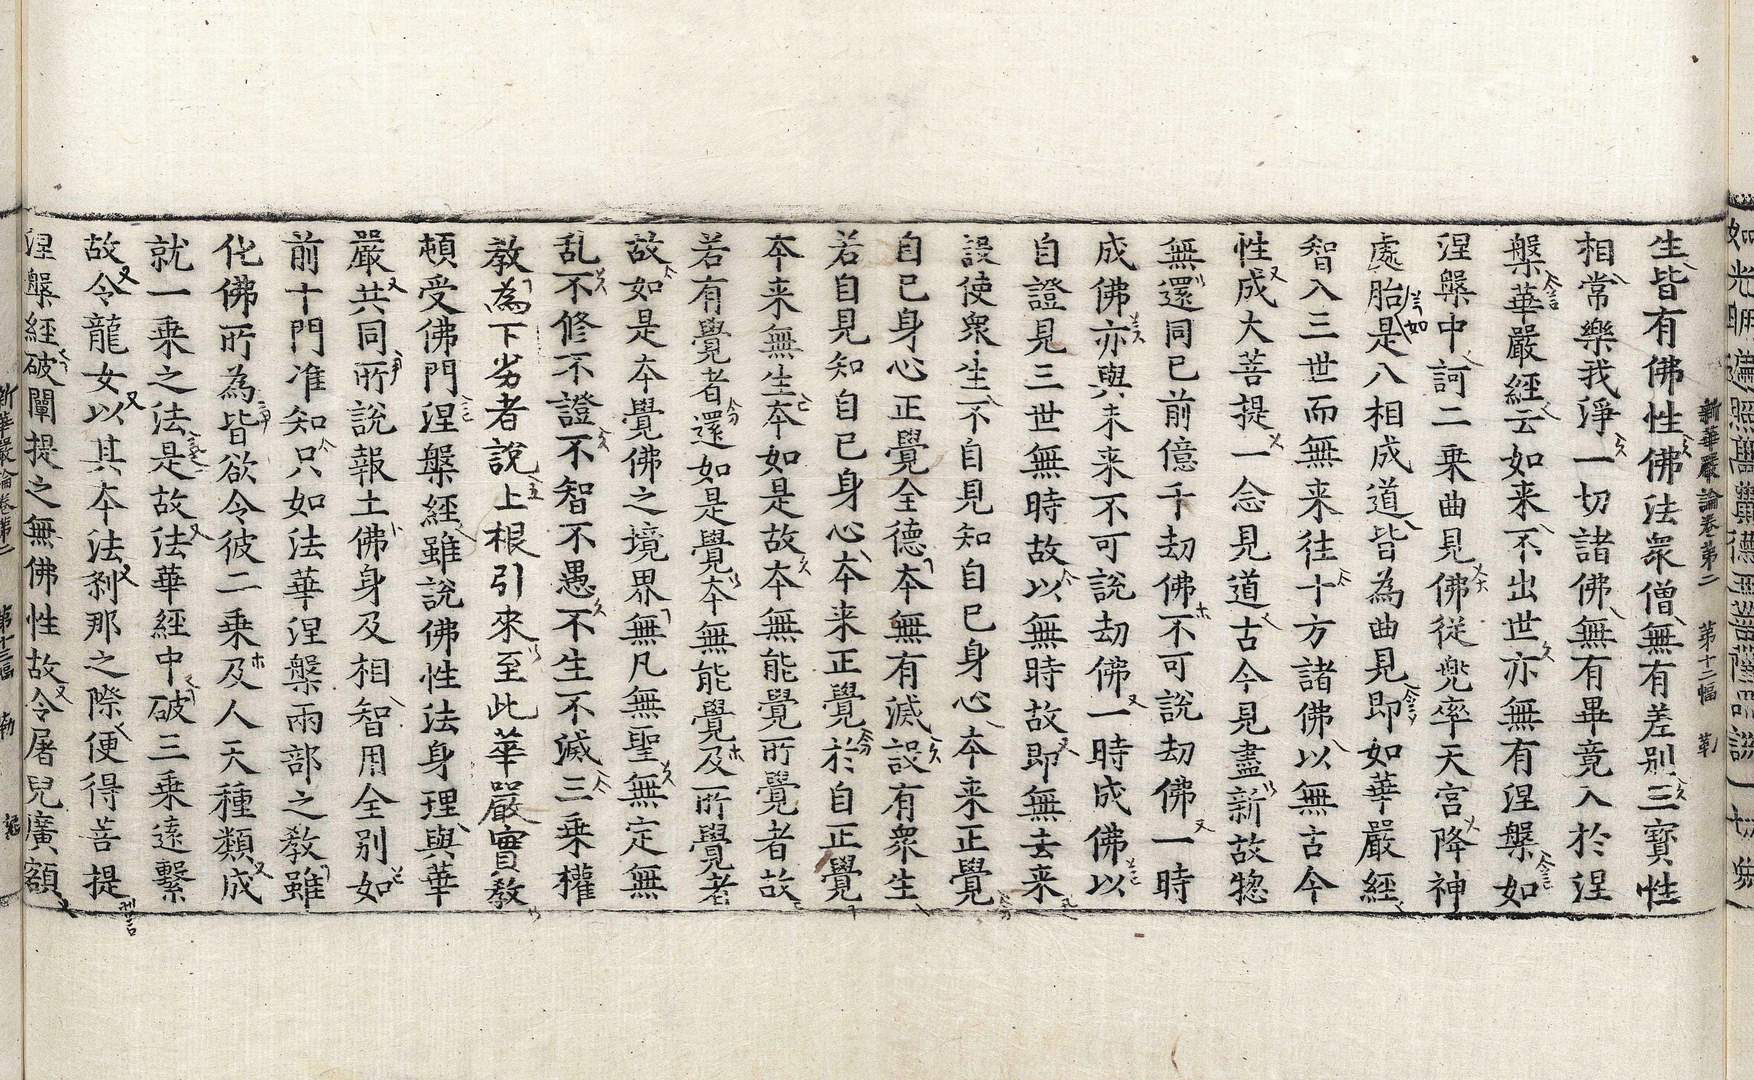 新華嚴論卷第二 第十二幅
生皆有佛性佛法衆僧無有差別三寶性
相常樂我淨一切諸佛無有畢竟入於涅
槃華嚴經云如来不出世亦無有涅槃如
涅槃中訶二乗曲見佛從兜率天宮降神
處胎是八相成道皆為曲見即如華嚴經
智入三世而無来往十方諸佛以無古今
性成大菩提一念見道古今見盡新故惣
無還同已前億千劫佛不可說劫佛一時
成佛亦與未来不可說劫佛一時成佛以
自證見三世無時故以無時故即無去来
設使衆生不自見知自已身心本来正覺
自已身心正覺全德本無有滅設有衆生
若自見知自已身心本来正覺於自正覺
本来無生本如是故本無能覺所覺者故
若有覺者還如是覺本無能覺及所覺者
故如是本覺佛之境界無凡無聖無定無
乱不修不證不智不愚不生不滅三乗權
教為下劣者說上根引來至此華嚴實教
頓受佛門涅槃經雖說佛性法身理與華
嚴共同所說報土佛身及相智用全别如
前十門准知只如法華涅槃兩部之教雖
化佛所為皆欲令彼二乗及人天種類成
就一乗之法是故法華經中破三乗遠繫
故令龍女以其本法刹那之際便得菩提
涅槃經破闡提之無佛性故令屠兒廣額
新華嚴論卷第二 第十三幅